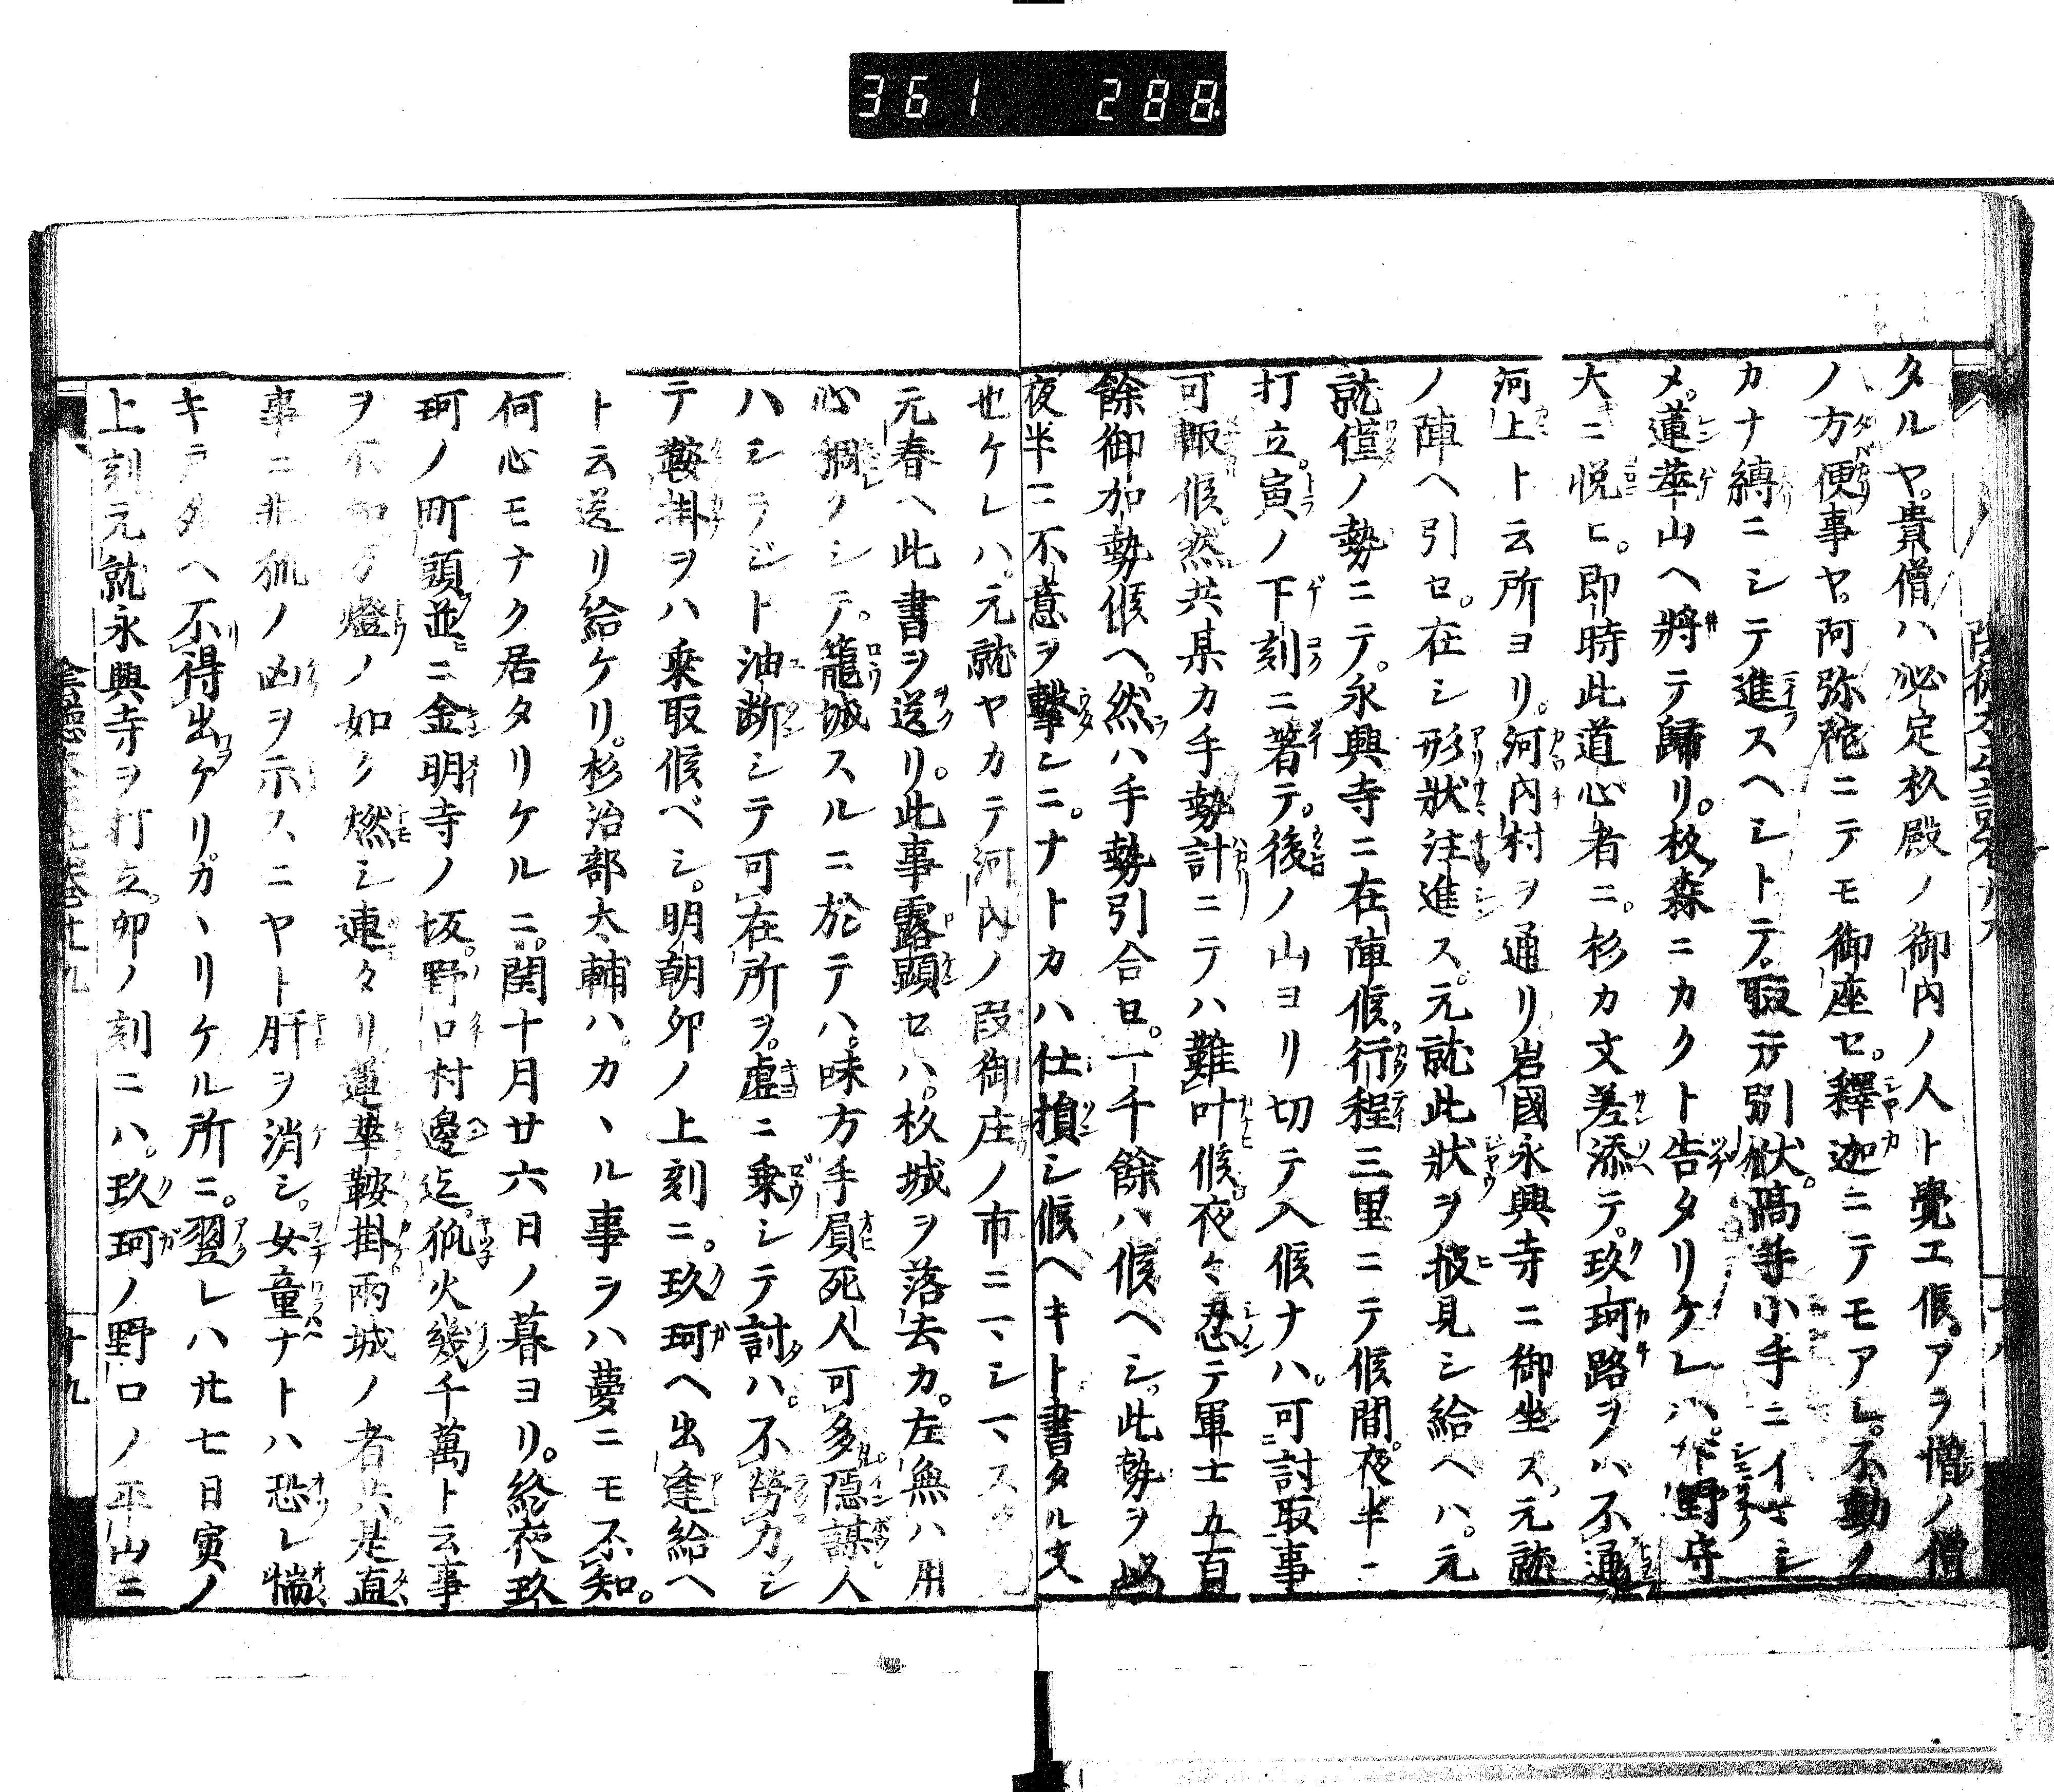 361 288
タルヤ。貴僧ハ必定杦殿ノ御内ノ人ト覺エ候。アラ憎ノ僧
ノ方便事ヤ。阿弥陀ニテモ御座セ。釋迦ニテモアレ。不動ノ
カナ縛ニシテ進スヘシトテ。取テ引伏。高手小手ニイマシ
メ。蓮華山ヘ將テ歸リ。杦森ニカクト告タリケレハ。野守
大ニ悦ヒ。即時此道心者ニ。杉カ文差添テ。玖珂路ヲハ不通
河上ト云所ヨリ。河内村ヲ通リ岩國永興寺ニ御坐ス。元就
ノ陣ヘ引セ。在シ形狀注進ス。元就此狀ヲ披見シ給ヘハ。元
就僅ノ勢ニテ。永興寺ニ在陣候。行程三里ニテ候間。夜半ニ
打立。寅ノ下刻ニ著テ。後ノ山ヨリ切テ入候ナハ。可討取事
可輙候。然共某カ手勢計ニテハ難叶候。夜々忍テ軍士五百
餘御加勢候ヘ。然ハ手勢引合セ。一千餘ハ候ヘシ。此勢ヲ以
夜半ニ不意ヲ擊シニ。ナトカハ仕損シ候ヘキト書タル文
也ケレハ。元就ヤカテ河内ノ段御庄ノ市ニ
元春ヘ此書ヲ送リ。此事露顕セハ。杦城ヲ落去カ。左無ハ用
心綢クシテ。籠城スルニ於テハ。味方手屓死人可多。隠謀人
ハシラジト油断シテ可在所ヲ。虚ニ乗シテ討ハ。不勞力シ
テ鞍掛ヲハ乗取候ベシ。明朝卯ノ上刻ニ。玖珂ヘ出逢給ヘ
ト云送リ給ケリ。杉治部大輔ハ。カヽル事ヲハ夢ニモ不知。
何心モナク居タリケルニ。閏十月廿六日ノ暮ヨリ。終夜玖
珂ノ町頭並ニ金明寺ノ坂。野口村邊迄。狐火幾千萬ト云事
ヲ不知。燈ノ如ク燃シ連タリ。蓮華鞍掛兩城ノ者共。是直
事ニ非狐ノ凶ヲ示スニヤト肝ヲ消シ。女童ナトハ恐レ惴
キテタヘ不得出ケリカヽリケル所ニ。翌レハ廿七日寅ノ
上刻元就永興寺ヲ打立。卯ノ刻ニハ。玖珂ノ野口ノ平山ニ
十九